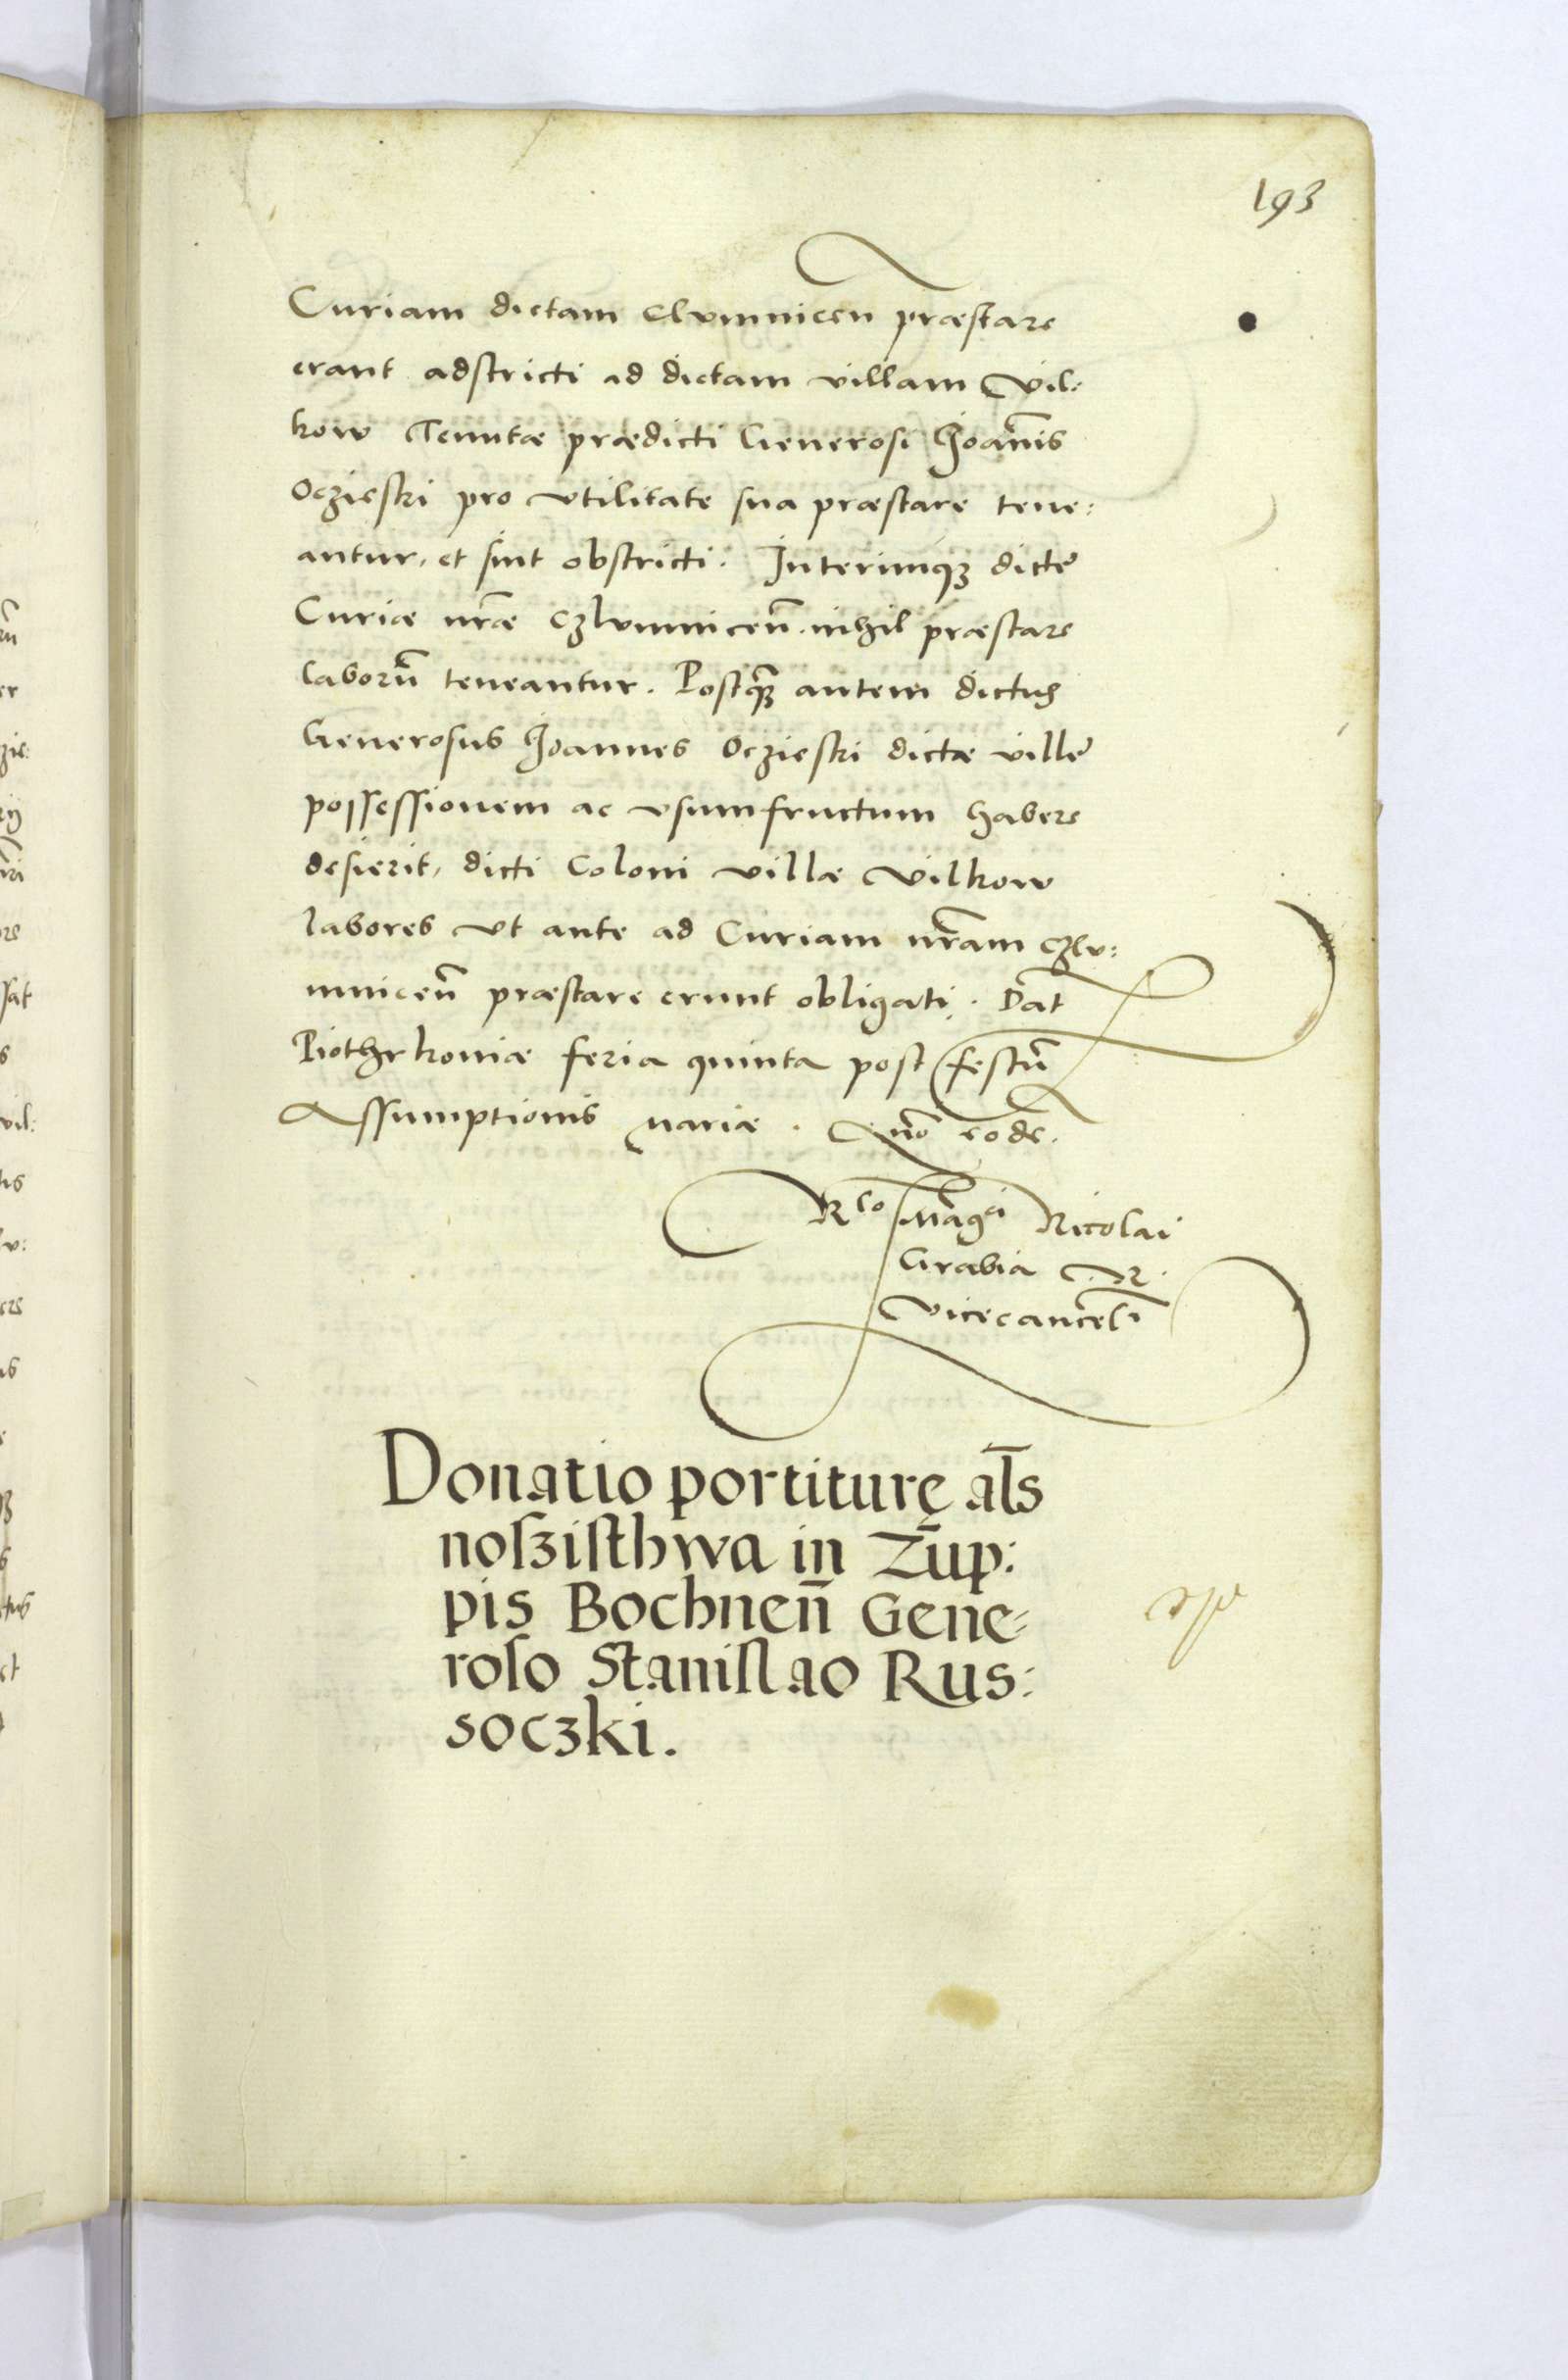 193
Curiam dictam Clumnicen præstare
erant adstricti ad dictam villam Vil:
kow Tenutæ prædicti Generosi Joan̄nis
Oczieski pro vtilitate sua præstare tene:
antur, et sint obstricti. Interimqȝ dictę
Curiæ nr̄æ Czlumnicen̄. nihil præstare
laborū teneantur. Postq̄ȝ autem dictus
Generosus Joannes Oczieski dictæ villę
possessionem ac vsumfructum habere
desierit, dicti Coloni villæ Vilkow
labores vt ante ad Curiam nr̄am Czlu:
mnicen̄ præstare erunt obligati. Dat
Piothrkoniæ feria quinta post festū
Assumptionis Mariæ. Anno eodē.
Rlo Mag̃ci Nicolai
Grabia R.
Vicecancel̄
Donatio portiturę al̄s
nosziſthwa in Zup:
pis Bochnen̄ Gene:
roſo Staniſlao Rus:
soczki.